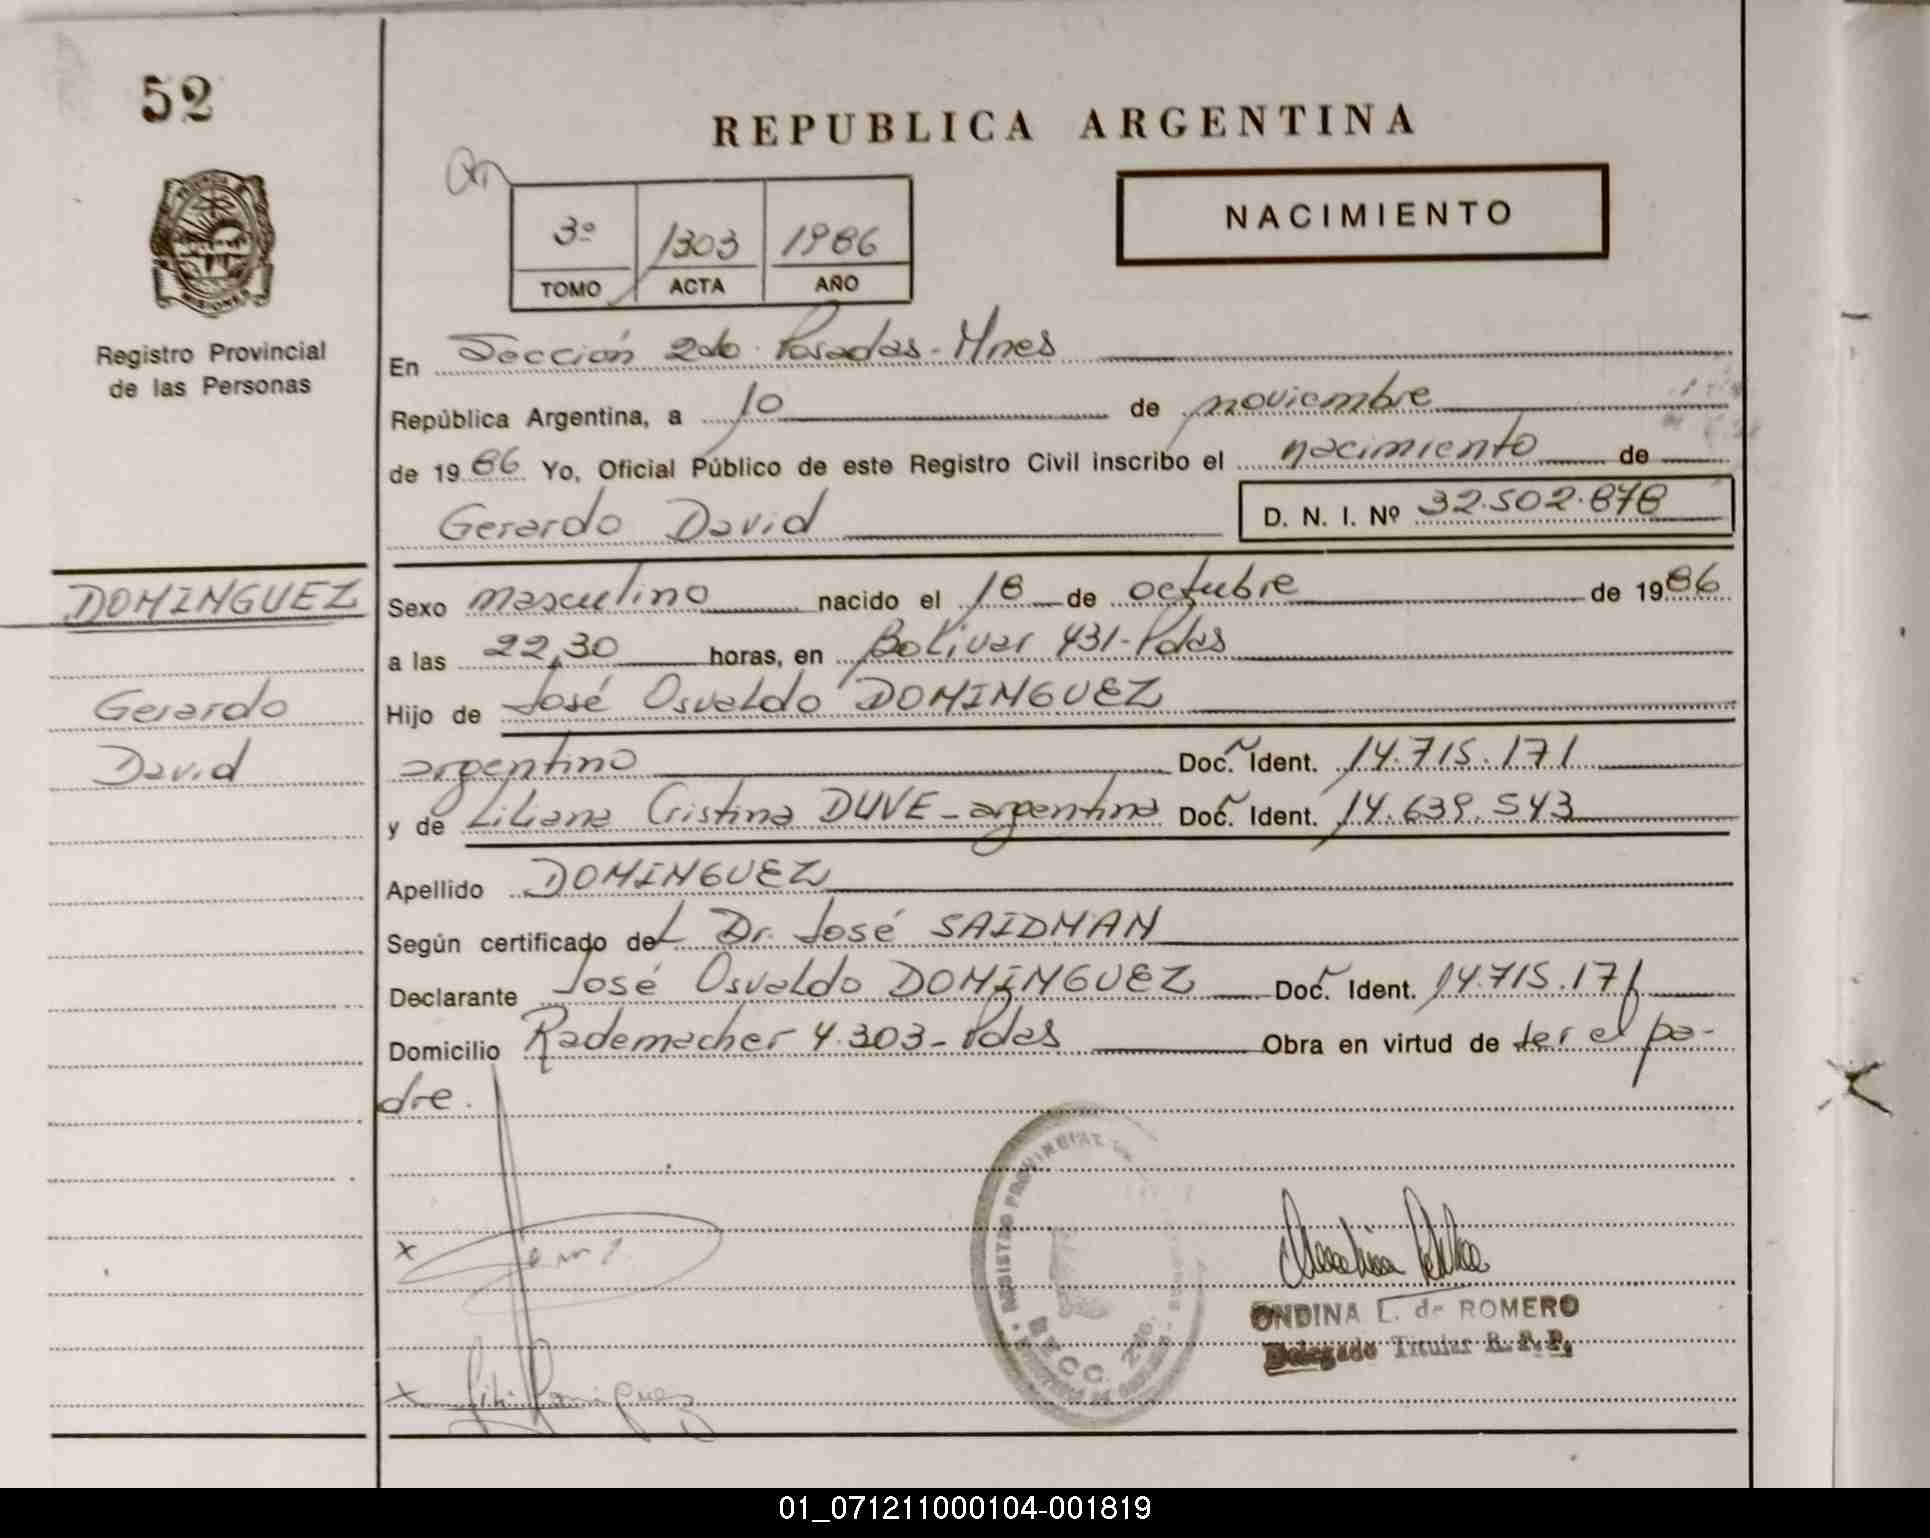 52
REPUBLICA ARGENTINA
NACIMIENTO
3º 1303 1986
TOMO ACTA AÑO
MISIONES
Registro Provincial
de las Personas
En Sección 2da. Posadas-Mnes
República Argentina, a 10 de noviembre
de 1986 Yo, Oficial Público de este Registro Civil inscribo el nacimiento de
Gerardo David D. N. I. Nº 32.502.878
DOMINGUEZ
Gerardo
David
Sexo masculino nacido el 18 de octubre de 1986
a las 22,30 horas, en Bolivar 431-Pdas
Hijo de José Osvaldo DOMINGUEZ
argentino Doc. Ident. 14.715.171
y de Liliana Cristina DUVE-argentina Doc. Ident. 14.639.543
Apellido DOMINGUEZ
Según certificado del Dr. José SAIDMAN
Declarante José Osvaldo DOMINGUEZ Doc. Ident. 14.715.171
Domicilio Rademacher 4.303-Pdas Obra en virtud de ser el pa-
dre.
x
x
REGISTRO PROVINCIAL
SECC. 2da.
ONDINA L. de ROMERO
Delegado Titular R. P. P.
01_071211000104-001819